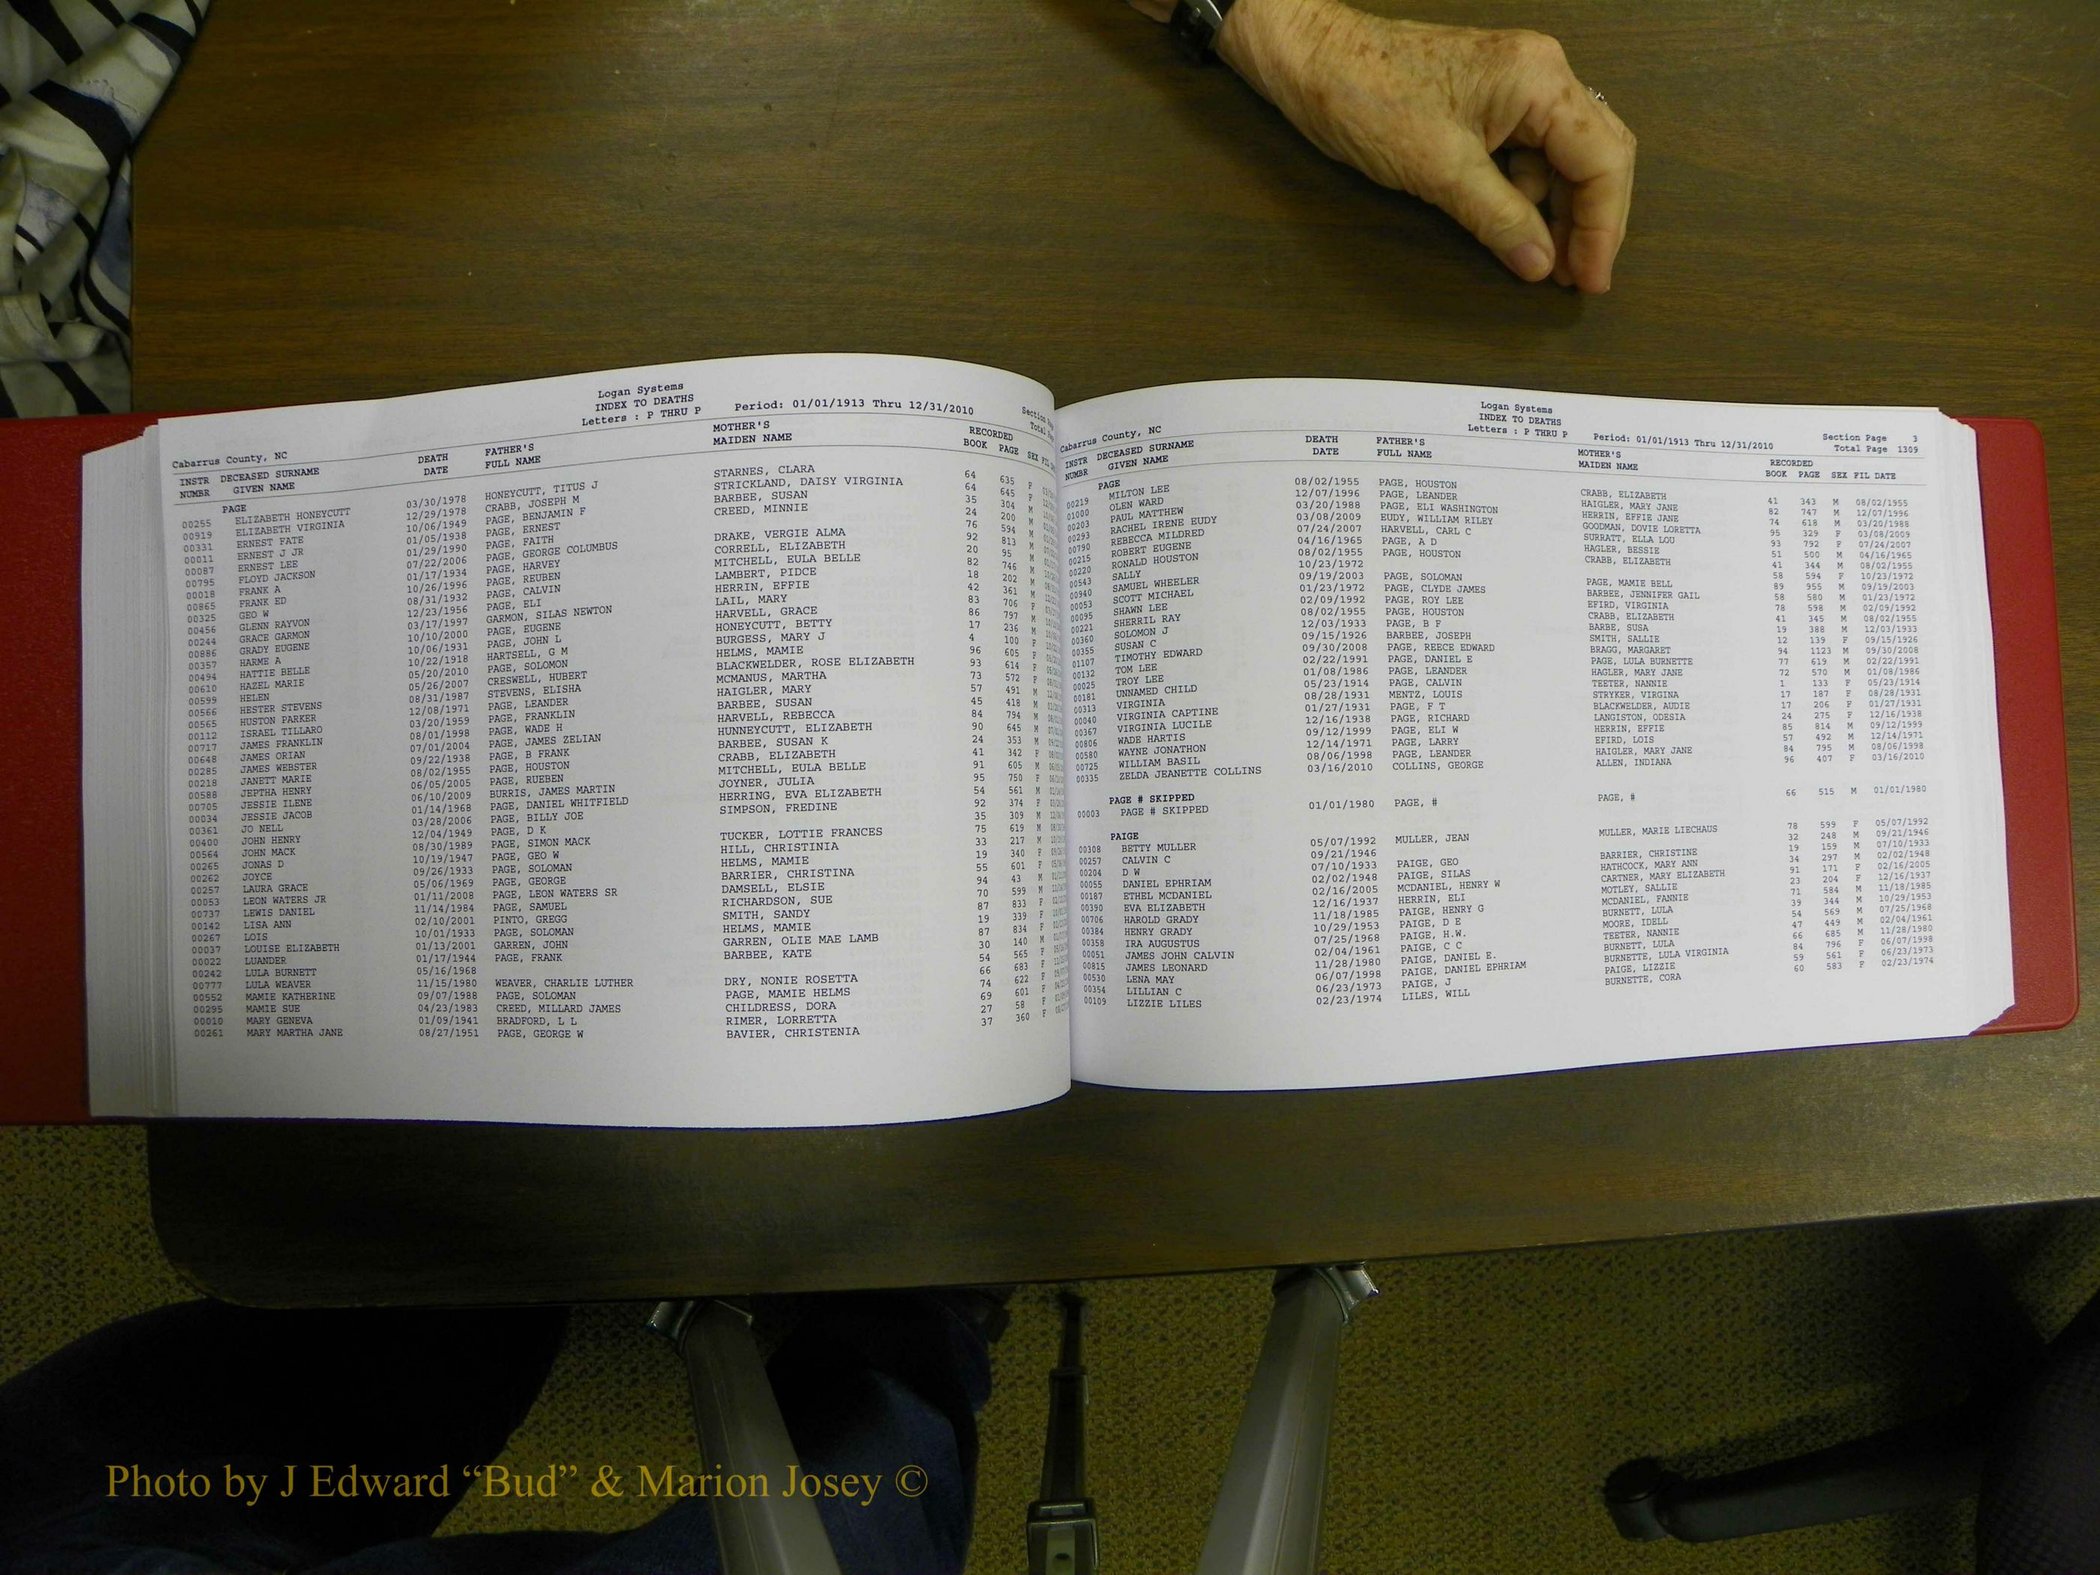 Logan Systems
INDEX TO DEATHS
Letters : P THRU P Period: 01/01/1913 Thru 12/31/2010
Cabarrus County, NC
INSTR DECEASED SURNAME DEATH FATHER'S MOTHER'S RECORDED
NUMBR GIVEN NAME DATE FULL NAME MAIDEN NAME BOOK PAGE SEX FIL
PAGE
00255 ELIZABETH HONEYCUTT 03/30/1978 HONEYCUTT, TITUS J STARNES, CLARA 64 635 F
00919 ELIZABETH VIRGINIA 12/29/1978 CRABB, JOSEPH M STRICKLAND, DAISY VIRGINIA 64 645 F
00331 ERNEST FATE 10/06/1949 PAGE, BENJAMIN F BARBEE, SUSAN 35 304 M
00011 ERNEST J JR 01/05/1938 PAGE, ERNEST CREED, MINNIE 24 200 M
00087 ERNEST LEE 01/29/1990 PAGE, FAITH 76 594 M
00795 FLOYD JACKSON 07/22/2006 PAGE, GEORGE COLUMBUS DRAKE, VERGIE ALMA 92 813 M
00018 FRANK A 01/17/1934 PAGE, HARVEY CORRELL, ELIZABETH 20 95 M
00865 FRANK ED 10/26/1996 PAGE, REUBEN MITCHELL, EULA BELLE 82 746 M
00325 GEO W 08/31/1932 PAGE, CALVIN LAMBERT, PIDCE 18 202 M
00456 GLENN RAYVON 12/23/1956 PAGE, ELI HERRIN, EFFIE 42 361 M
00244 GRACE GARMON 03/17/1997 GARMON, SILAS NEWTON LAIL, MARY 83 706 F
00886 GRADY EUGENE 10/10/2000 PAGE, EUGENE HARVELL, GRACE 86 797 M
00357 HARME A 10/06/1931 PAGE, JOHN L HONEYCUTT, BETTY 17 236 M
00494 HATTIE BELLE 10/22/1918 HARTSELL, G M BURGESS, MARY J 4 100 F
00610 HAZEL MARIE 05/20/2010 PAGE, SOLOMON HELMS, MAMIE 96 605 F
00599 HELEN 05/26/2007 CRESWELL, HUBERT BLACKWELDER, ROSE ELIZABETH 93 614 F
00566 HESTER STEVENS 08/31/1987 STEVENS, ELISHA MCMANUS, MARTHA 73 572 F
00565 HUSTON PARKER 12/08/1971 PAGE, LEANDER HAIGLER, MARY 57 491 M
00112 ISRAEL TILLARO 03/20/1959 PAGE, FRANKLIN BARBEE, SUSAN 45 418 M
00717 JAMES FRANKLIN 08/01/1998 PAGE, WADE H HARVELL, REBECCA 84 794 M
00648 JAMES ORIAN 07/01/2004 PAGE, JAMES ZELIAN HUNNEYCUTT, ELIZABETH 90 645 M
00285 JAMES WEBSTER 09/22/1938 PAGE, B FRANK BARBEE, SUSAN K 24 353 M
00218 JANETT MARIE 08/02/1955 PAGE, HOUSTON CRABB, ELIZABETH 41 342 F
00588 JEPTHA HENRY 06/05/2005 PAGE, RUEBEN MITCHELL, EULA BELLE 91 605 M
00705 JESSIE ILENE 06/10/2009 BURRIS, JAMES MARTIN JOYNER, JULIA 95 750 F
00034 JESSIE JACOB 01/14/1968 PAGE, DANIEL WHITFIELD HERRING, EVA ELIZABETH 54 561 M
00361 JO NELL 03/28/2006 PAGE, BILLY JOE SIMPSON, FREDINE 92 374 F
00400 JOHN HENRY 12/04/1949 PAGE, D K 35 309 M
00564 JOHN MACK 08/30/1989 PAGE, SIMON MACK TUCKER, LOTTIE FRANCES 75 619 M
00265 JONAS D 10/19/1947 PAGE, GEO W HILL, CHRISTINIA 33 217 M
00262 JOYCE 09/26/1933 PAGE, SOLOMAN HELMS, MAMIE 19 340 F
00257 LAURA GRACE 05/06/1969 PAGE, GEORGE BARRIER, CHRISTINA 55 601 F
00053 LEON WATERS JR 01/11/2008 PAGE, LEON WATERS SR DAMSELL, ELSIE 94 43 M
00737 LEWIS DANIEL 11/14/1984 PAGE, SAMUEL RICHARDSON, SUE 70 599 M
00142 LISA ANN 02/10/2001 PINTO, GREGG SMITH, SANDY 87 833 F
00267 LOIS 10/01/1933 PAGE, SOLOMAN HELMS, MAMIE 19 339 F
00037 LOUISE ELIZABETH 01/13/2001 GARREN, JOHN GARREN, OLIE MAE LAMB 87 834 F
00022 LUANDER 01/17/1944 PAGE, FRANK BARBEE, KATE 30 140 M
00242 LULA BURNETT 05/16/1968 54 565 F
00777 LULA WEAVER 11/15/1980 WEAVER, CHARLIE LUTHER DRY, NONIE ROSETTA 66 683 F
00552 MAMIE KATHERINE 09/07/1988 PAGE, SOLOMAN PAGE, MAMIE HELMS 74 622 F
00295 MAMIE SUE 04/23/1983 CREED, MILLARD JAMES CHILDRESS, DORA 69 601 F
00010 MARY GENEVA 01/09/1941 BRADFORD, L L RIMER, LORRETTA 27 58 F
00261 MARY MARTHA JANE 08/27/1951 PAGE, GEORGE W BAVIER, CHRISTENIA 37 360 F
Logan Systems
INDEX TO DEATHS
Letters : P THRU P Period: 01/01/1913 Thru 12/31/2010
Cabarrus County, NC Section Page 3
Total Page 1309
INSTR DECEASED SURNAME DEATH FATHER'S MOTHER'S RECORDED
NUMBR GIVEN NAME DATE FULL NAME MAIDEN NAME BOOK PAGE SEX FIL DATE
PAGE
00219 MILTON LEE 08/02/1955 PAGE, HOUSTON CRABB, ELIZABETH 41 343 M 08/02/1955
01000 OLEN WARD 12/07/1996 PAGE, LEANDER HAIGLER, MARY JANE 82 747 M 12/07/1996
00203 PAUL MATTHEW 03/20/1988 PAGE, ELI WASHINGTON HERRIN, EFFIE JANE 74 618 M 03/20/1988
00293 RACHEL IRENE EUDY 03/08/2009 EUDY, WILLIAM RILEY GOODMAN, DOVIE LORETTA 95 329 F 03/08/2009
00790 REBECCA MILDRED 07/24/2007 HARVELL, CARL C SURRATT, ELLA LOU 93 792 F 07/24/2007
00215 ROBERT EUGENE 04/16/1965 PAGE, A D HAGLER, BESSIE 51 500 M 04/16/1965
00220 RONALD HOUSTON 08/02/1955 PAGE, HOUSTON CRABB, ELIZABETH 41 344 M 08/02/1955
00543 SALLY 10/23/1972 58 594 F 10/23/1972
00940 SAMUEL WHEELER 09/19/2003 PAGE, SOLOMAN PAGE, MAMIE BELL 89 955 M 09/19/2003
00053 SCOTT MICHAEL 01/23/1972 PAGE, CLYDE JAMES BARBEE, JENNIFER GAIL 58 580 M 01/23/1972
00095 SHAWN LEE 02/09/1992 PAGE, ROY LEE EFIRD, VIRGINIA 78 598 M 02/09/1992
00221 SHERRIL RAY 08/02/1955 PAGE, HOUSTON CRABB, ELIZABETH 41 345 M 08/02/1955
00360 SOLOMON J 12/03/1933 PAGE, B F BARBE, SUSA 19 388 M 12/03/1933
00355 SUSAN C 09/15/1926 BARBEE, JOSEPH SMITH, SALLIE 12 139 F 09/15/1926
01107 TIMOTHY EDWARD 09/30/2008 PAGE, REECE EDWARD BRAGG, MARGARET 94 1123 M 09/30/2008
00132 TOM LEE 02/22/1991 PAGE, DANIEL E PAGE, LULA BURNETTE 77 619 M 02/22/1991
00025 TROY LEE 01/08/1986 PAGE, LEANDER HAGLER, MARY JANE 72 570 M 01/08/1986
00181 UNNAMED CHILD 05/23/1914 PAGE, CALVIN TEETER, NANNIE 1 133 F 05/23/1914
00313 VIRGINIA 08/28/1931 MENTZ, LOUIS STRYKER, VIRGINA 17 187 F 08/28/1931
00040 VIRGINIA CAPTINE 01/27/1931 PAGE, F T BLACKWELDER, AUDIE 17 206 F 01/27/1931
00367 VIRGINIA LUCILE 12/16/1938 PAGE, RICHARD LANGISTON, ODESIA 24 275 F 12/16/1938
00806 WADE HARTIS 09/12/1999 PAGE, ELI W HERRIN, EFFIE 85 814 M 09/12/1999
00580 WAYNE JONATHON 12/14/1971 PAGE, LARRY EFIRD, LOIS 57 492 M 12/14/1971
00725 WILLIAM BASIL 08/06/1998 PAGE, LEANDER HAIGLER, MARY JANE 84 795 M 08/06/1998
00335 ZELDA JEANETTE COLLINS 03/16/2010 COLLINS, GEORGE ALLEN, INDIANA 96 407 F 03/16/2010
PAGE # SKIPPED
00003 PAGE # SKIPPED 01/01/1980 PAGE, # PAGE, # 66 515 M 01/01/1980
PAIGE
00308 BETTY MULLER 05/07/1992 MULLER, JEAN MULLER, MARIE LIECHAUS 78 599 F 05/07/1992
00257 CALVIN C 09/21/1946 32 248 M 09/21/1946
00204 D W 07/10/1933 PAIGE, GEO BARRIER, CHRISTINE 19 159 M 07/10/1933
00055 DANIEL EPHRIAM 02/02/1948 PAIGE, SILAS HATHCOCK, MARY ANN 34 297 M 02/02/1948
00187 ETHEL MCDANIEL 02/16/2005 MCDANIEL, HENRY W CARTNER, MARY ELIZABETH 91 171 F 02/16/2005
00390 EVA ELIZABETH 12/16/1937 HERRIN, ELI MOTLEY, SALLIE 23 204 F 12/16/1937
00706 HAROLD GRADY 11/18/1985 PAIGE, HENRY G MCDANIEL, FANNIE 71 584 M 11/18/1985
00384 HENRY GRADY 10/29/1953 PAIGE, D E BURNETT, LULA 39 344 M 10/29/1953
00358 IRA AUGUSTUS 07/25/1968 PAIGE, H.W. MOORE, IDELL 54 569 M 07/25/1968
00051 JAMES JOHN CALVIN 02/04/1961 PAIGE, C C TEETER, NANNIE 47 449 M 02/04/1961
00815 JAMES LEONARD 11/28/1980 PAIGE, DANIEL E. BURNETT, LULA 66 685 M 11/28/1980
00530 LENA MAY 06/07/1998 PAIGE, DANIEL EPHRIAM BURNETTE, LULA VIRGINIA 84 796 F 06/07/1998
00354 LILLIAN C 06/23/1973 PAIGE, J PAIGE, LIZZIE 59 561 F 06/23/1973
00109 LIZZIE LILES 02/23/1974 LILES, WILL BURNETTE, CORA 60 583 F 02/23/1974
Photo by J Edward “Bud” & Marion Josey ©